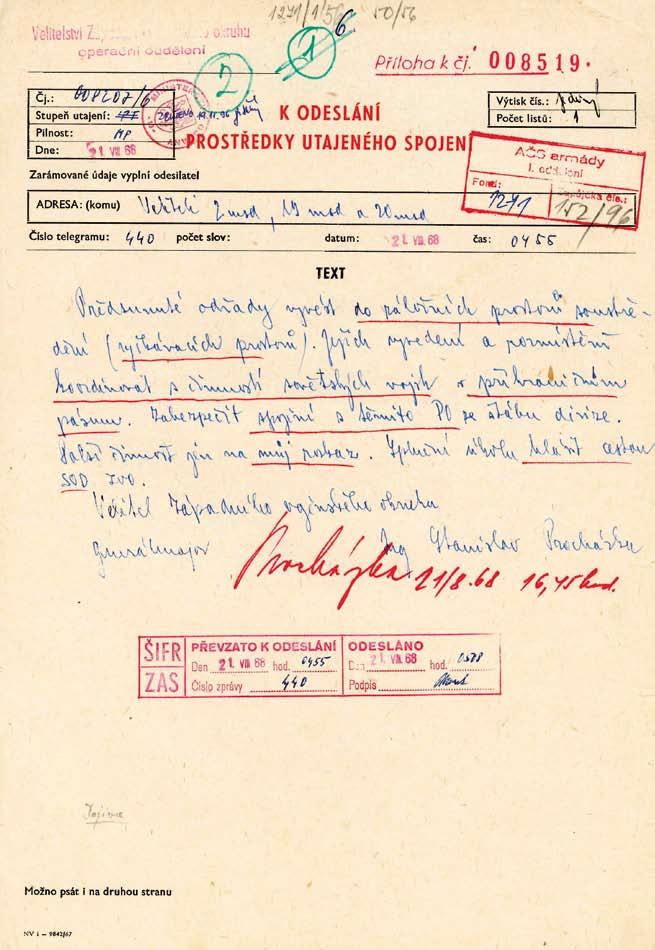 1271/1/56 50/56
6
Velitelství Zá okruhu
operační oddělení
2
1
Příloha k čj. 008519.
Čj.: 008207/6
Stupeň utajení:
Pilnost: MP
Dne: 21. VIII. 68
ZRUŠENO 19.11.96
K ODESLÁNÍ
PROSTŘEDKY UTAJENÉHO SPOJENÍ
Výtisk čís.: jediný
Počet listů: 1
AČS armády
1. oddělení
Fond: 1271
Zápůjčka čís.: 152/96
Zarámované údaje vyplní odesilatel
ADRESA: (komu) Veliteli 2 msd, 19 msd a 20 msd
Číslo telegramu: 440 počet slov: datum: 21. VIII. 68 čas: 0455
TEXT
Předsunuté odřady vyvést do záložních prostorů soustře-
dění (vyčkávacích prostorů). Jejich vyvedení a rozmístění
koordinovat s činností sovětských vojsk v příhraničním
pásmu. Zabezpečit spojení s těmito PO ze štábu divize.
Další činnost jen na můj rozkaz. Splnění úkolu hlásit cestou
SOD ZVO.
Velitel Západního vojenského okruhu
Generálmajor Ing Stanislav Procházka
Procházka 21/8.68 16,45 hod.
ŠIFR
ZAS
PŘEVZATO K ODESLÁNÍ
Den 21. VIII. 68 hod. 0455
Číslo zprávy 440
ODESLÁNO
Den 21. VIII. 68 hod. 0528
Podpis
Možno psát i na druhou stranu
NV 1 – 9842/67